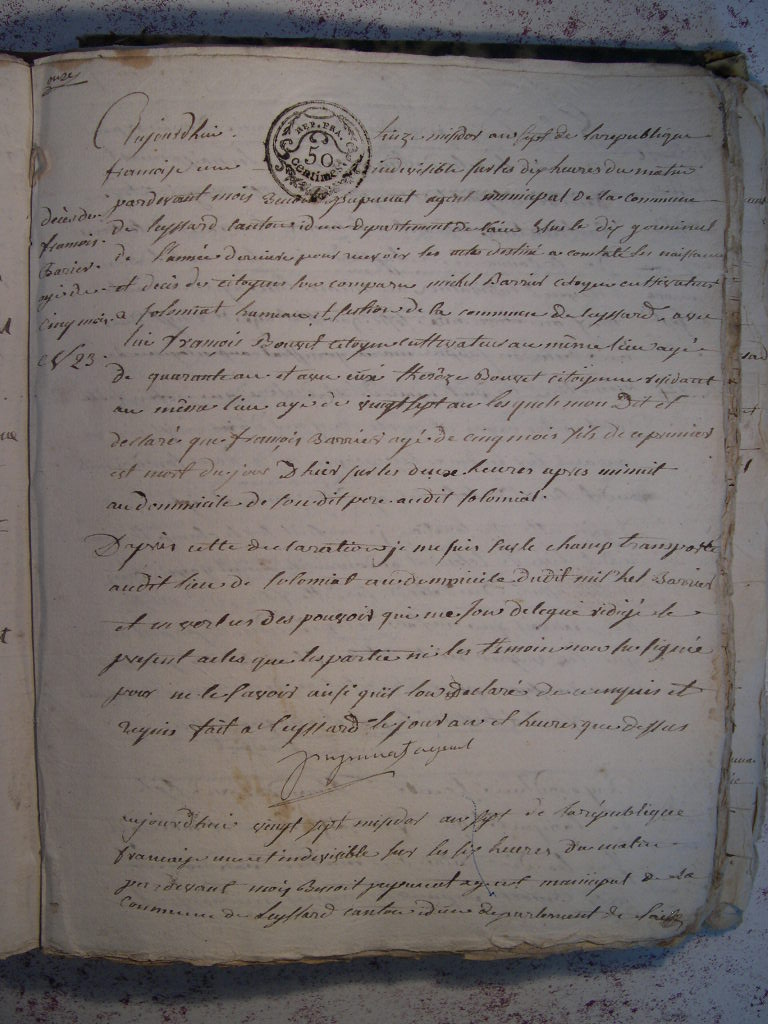 onze
Aujourdhui seize messidor an sept de la republique
REP. FRA.
50
Centimes
francaise une indivisible sur les dix heures du matin
pardevant mois Benoit papunat agent municipal de la commune
de leyssard canton idem departement de l'ain Elu le dix germinal
de l'année derniere pour recevoir les actes destiné a constaté les naissance
et décès des citoyens sou comparu michel Barrier citoyen cultivateur
a solomiat hameau et section de la commune de leyssard, avec
lui françois Bouvet citoyen cultivateur au même lieu agé
De quarante an et avec eux therèze Bouvet citoyenne residant
au même lieu agé de vingt sept an les quels mon Dit et
declaré que françois Barrier agé de cinq mois fils de ce premier
est mort du jour D'hier sur les deux heures apres minuit
au domicile de son dit pere audit solomiat.
décès de
francois
Barier
agé de
cinq mois
N 23.
D'après cette declaration je me suis sur le champ transporté
audit lieu de solomiat au domicile dudit michel Barrier
et en vertus des pouvoir qui me sou delegué redigé le
present actes que les partie ni les temoin nou su signée
pour ne le savoir ainsi quil lon declaré de ce enquis et
requis fait a leyssard le jour an et heures que dessus
papunat agent
aujourdhui vingt sept messidor an sept de la république
francaise une et indivisible sur les six heures du matin
par devant mois Benoit papunat agent municipal de la
Commune de leyssard canton idem departement de lain